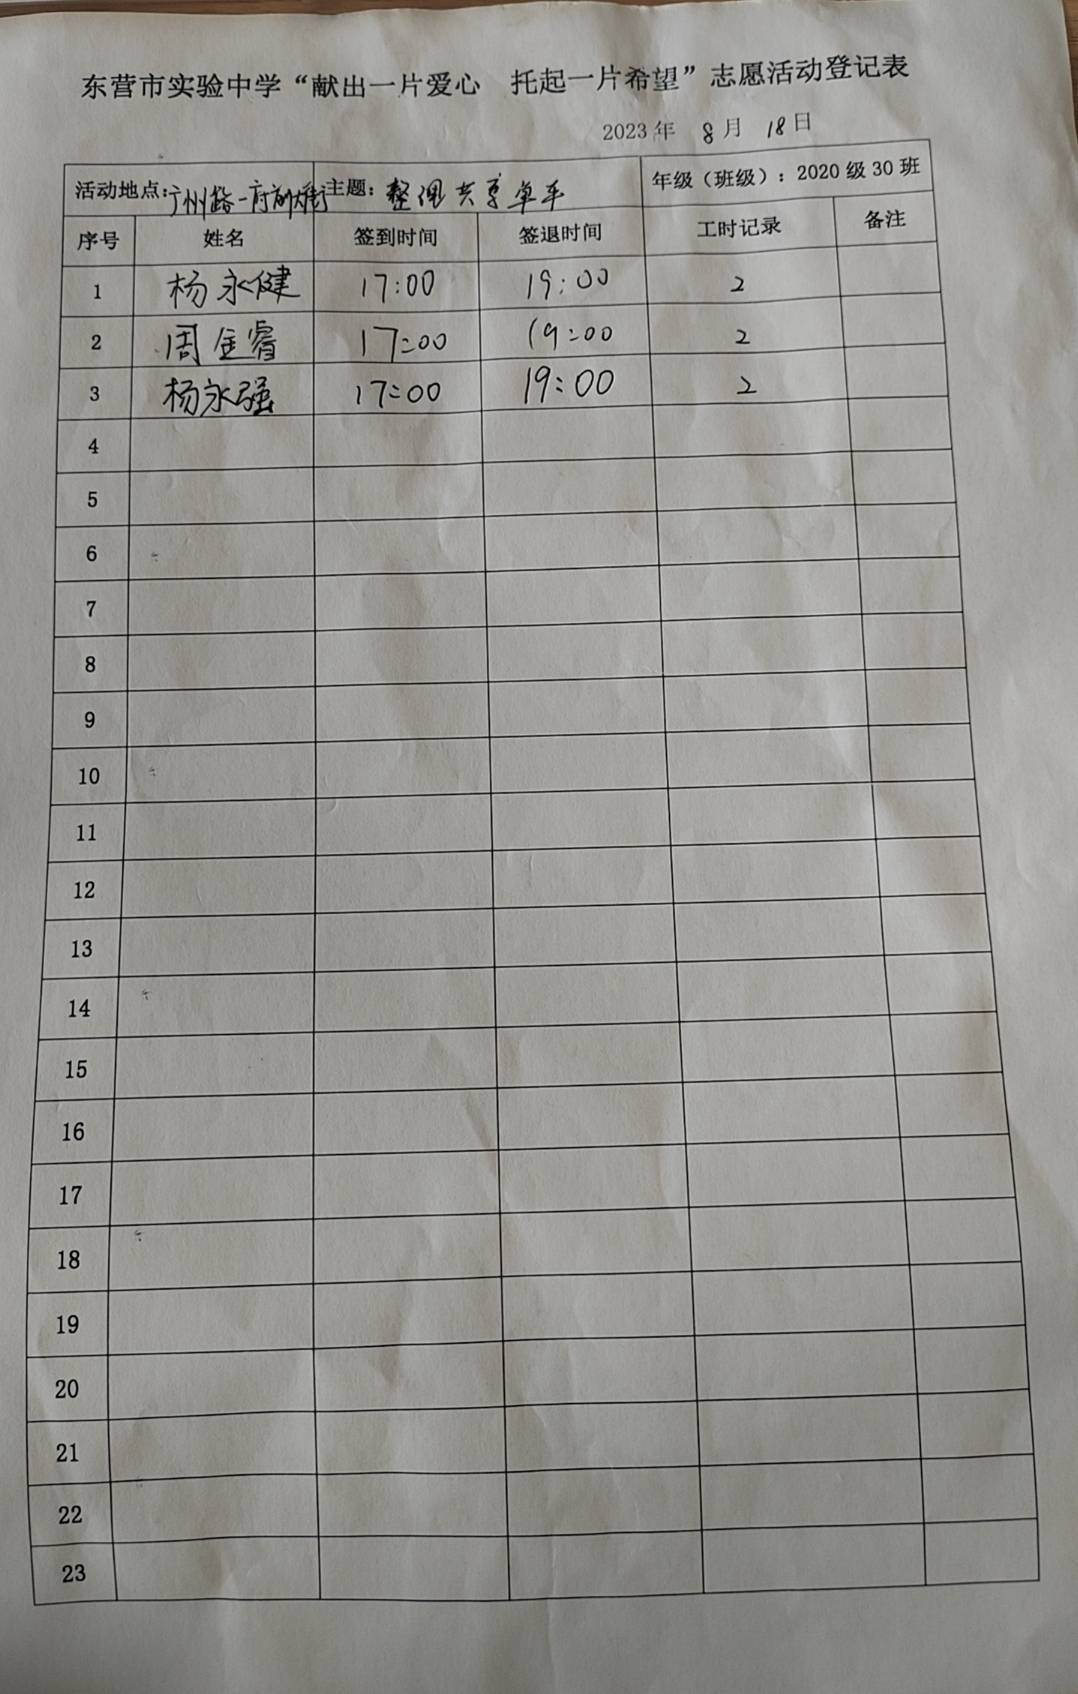 东营市实验中学“献出一片爱心 托起一片希望”志愿活动登记表
2023年 8月 18日
活动地点:广州路-府前大街 主题:整理共享单车 年级(班级):2020级30班
序号 姓名 签到时间 签退时间 工时记录 备注
1 杨永健 17:00 19:00 2
2 周金睿 17:00 19:00 2
3 杨永强 17:00 19:00 2
4
5
6
7
8
9
10
11
12
13
14
15
16
17
18
19
20
21
22
23